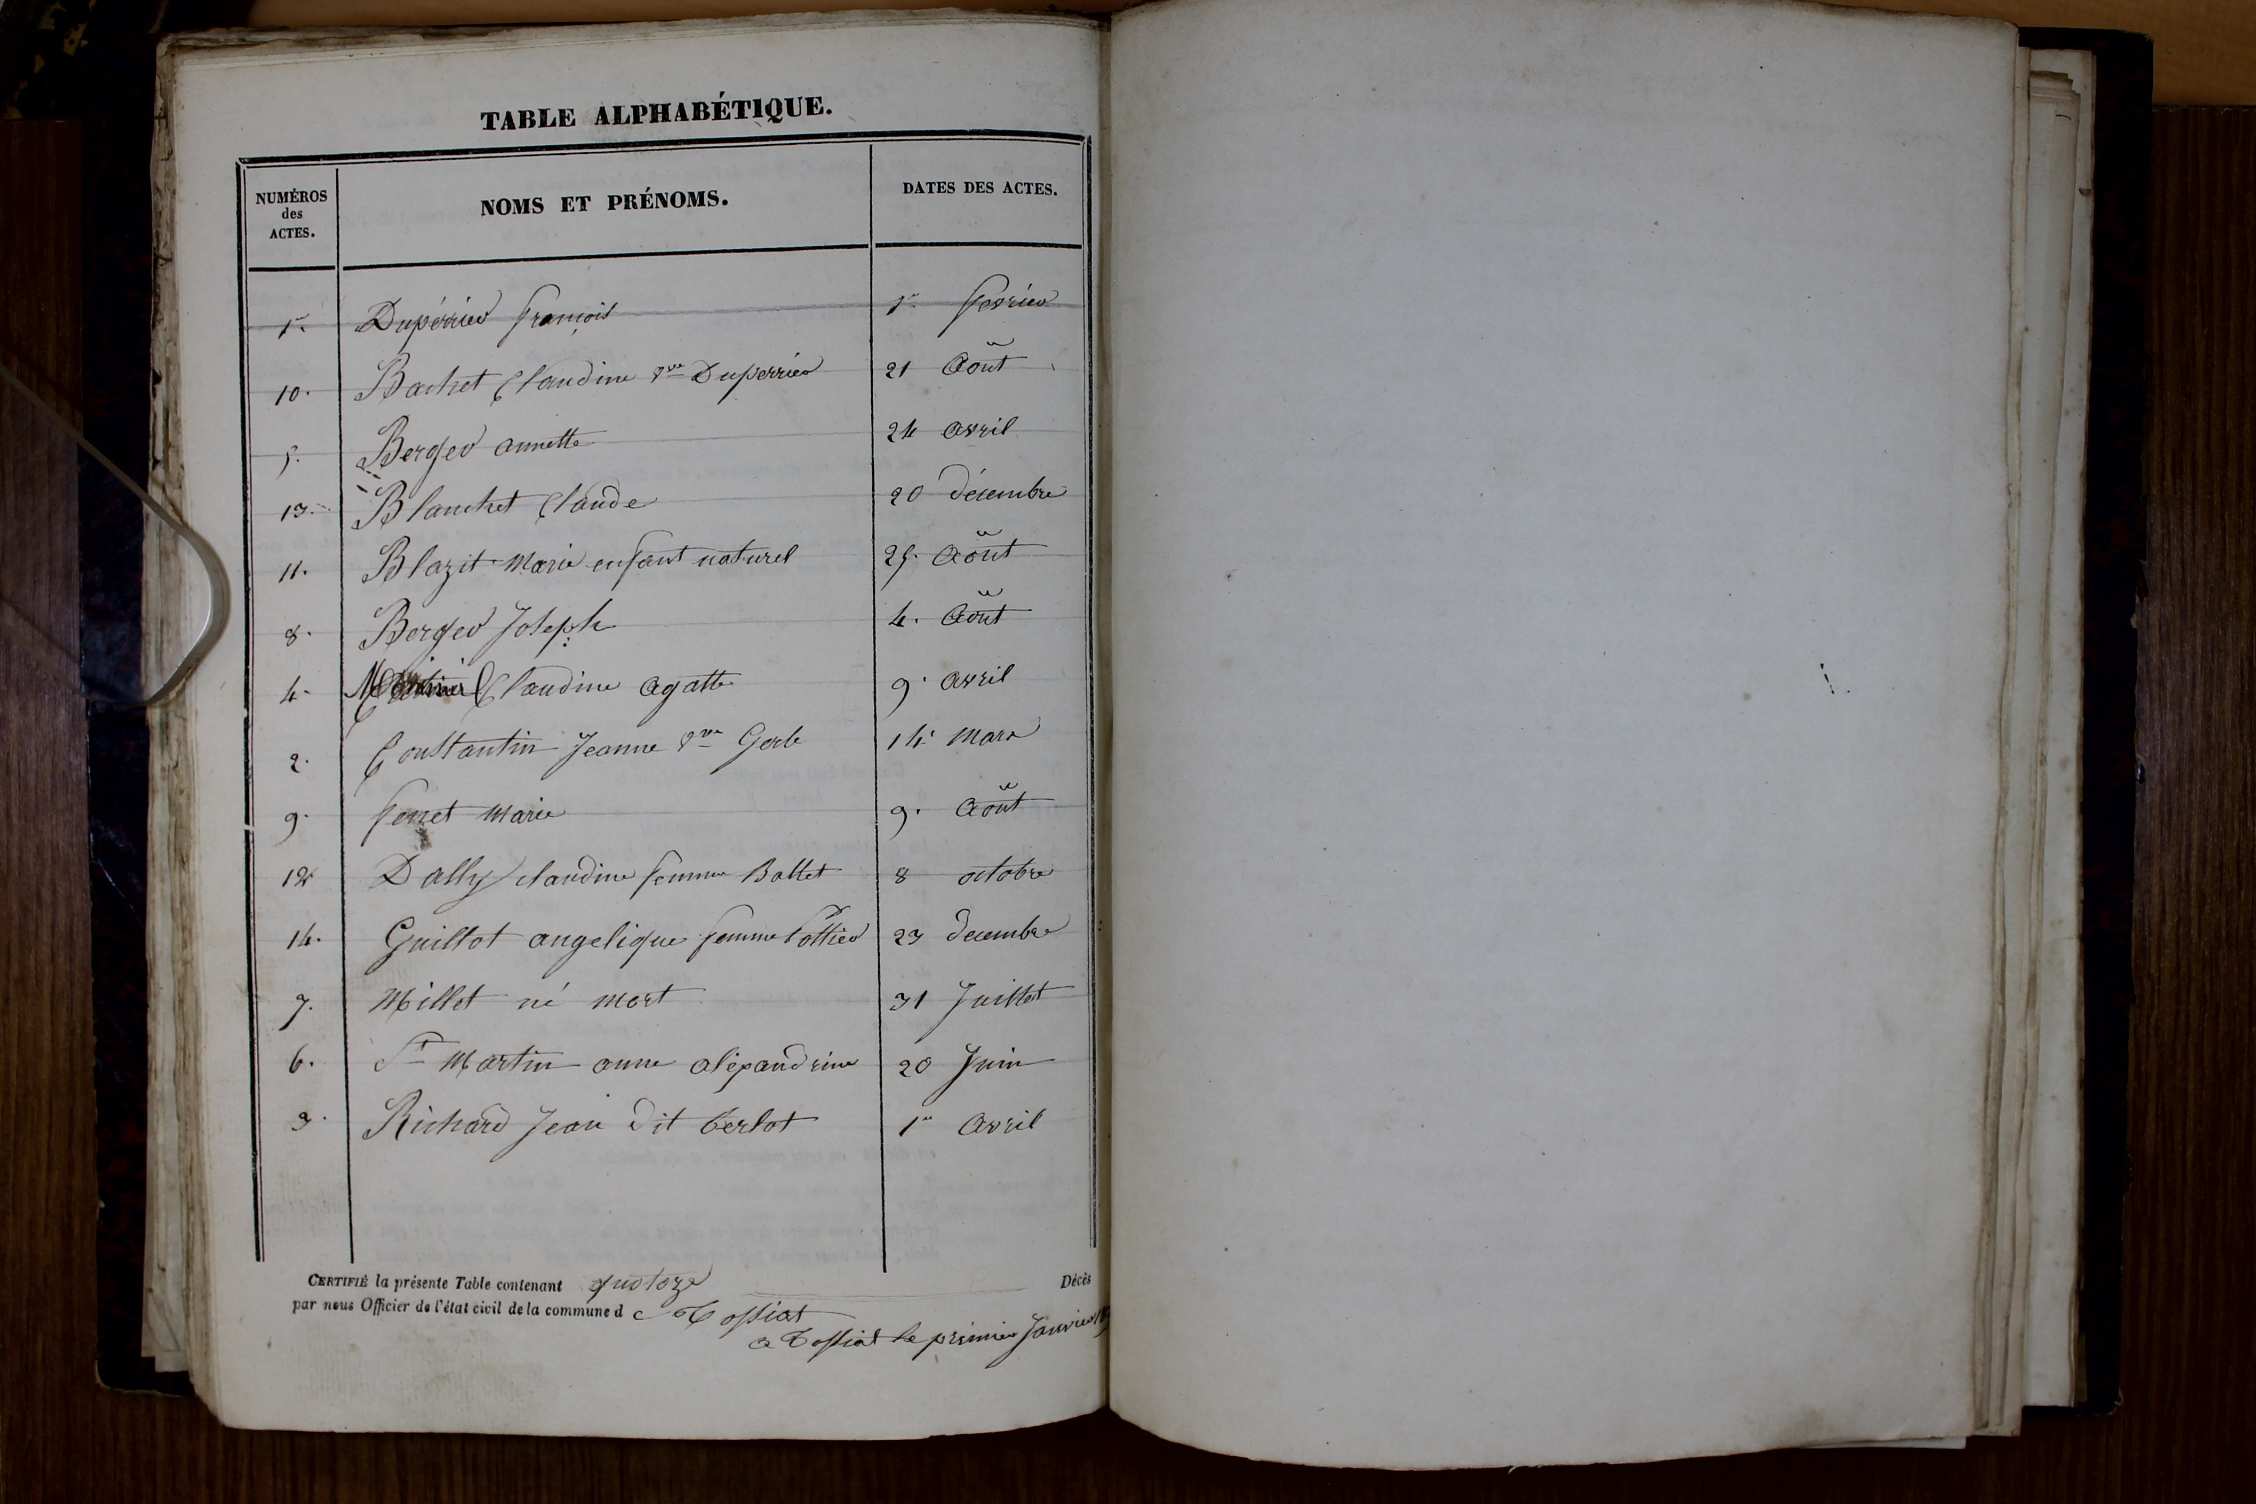 TABLE ALPHABÉTIQUE.
NUMÉROS des ACTES. NOMS ET PRÉNOMS. DATES DES ACTES.
1er. Dupérrier françois 1er fevrier
10. Bachet Claudine Vve Duperrier 21 Août
5. Berger annette 24 avril
13. Blanchet Claude 20 décembre
11. Blazit Marie enfant naturel 25. Août
8. Berger Joseph 4. Août
4. Claudine agatte 9. avril
2. Constantin Jeanne Vve Gerle 14 Mars
9. ferret Marie 9. Août
12 Dally claudine femme Bottet 8 octobre
14. Guillot angelique femme Pottier 23 decembre
7. Millet né mort 31 Juillet
6. St Martin anne aléxandrine 20 Juin
3. Richard Jean dit berlot 1er Avril
CERTIFIÉ la présente Table contenant quatorze Décès
par nous Officier de l'état civil de la commune de Tossiat
a Tossiat le premier Janvier